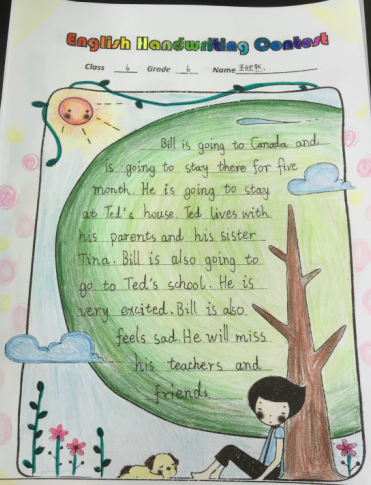 English Handwriting Contest
Class 6 Grade 6 Name
Bill is going to Canada and
is going to stay there for five
month. He is going to stay
at Ted's house. Ted lives with
his parents and his sister
Tina. Bill is also going to
go to Ted's school. He is
very excited. Bill is also
feels sad. He will miss
his teachers and
friends.